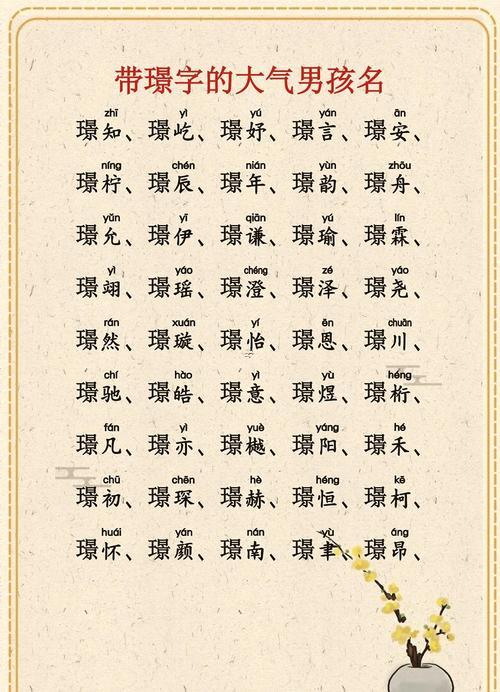 带璟字的大气男孩名
zhī yì yú yán ān
璟知、璟屹、璟妤、璟言、璟安、
níng chén nián yùn zhōu
璟柠、璟辰、璟年、璟韵、璟舟、
yǔn yī qiān yú lín
璟允、璟伊、璟谦、璟瑜、璟霖、
yì yáo chéng zé yáo
璟翊、璟瑶、璟澄、璟泽、璟尧、
rán xuán yí ēn chuān
璟然、璟璇、璟怡、璟恩、璟川、
chí hào yì yù héng
璟驰、璟皓、璟意、璟煜、璟桁、
fán yì yuè yáng hé
璟凡、璟亦、璟樾、璟阳、璟禾、
chū chēn hè héng kē
璟初、璟琛、璟赫、璟恒、璟柯、
huái yán nán yù áng
璟怀、璟颜、璟南、璟聿、璟昂、